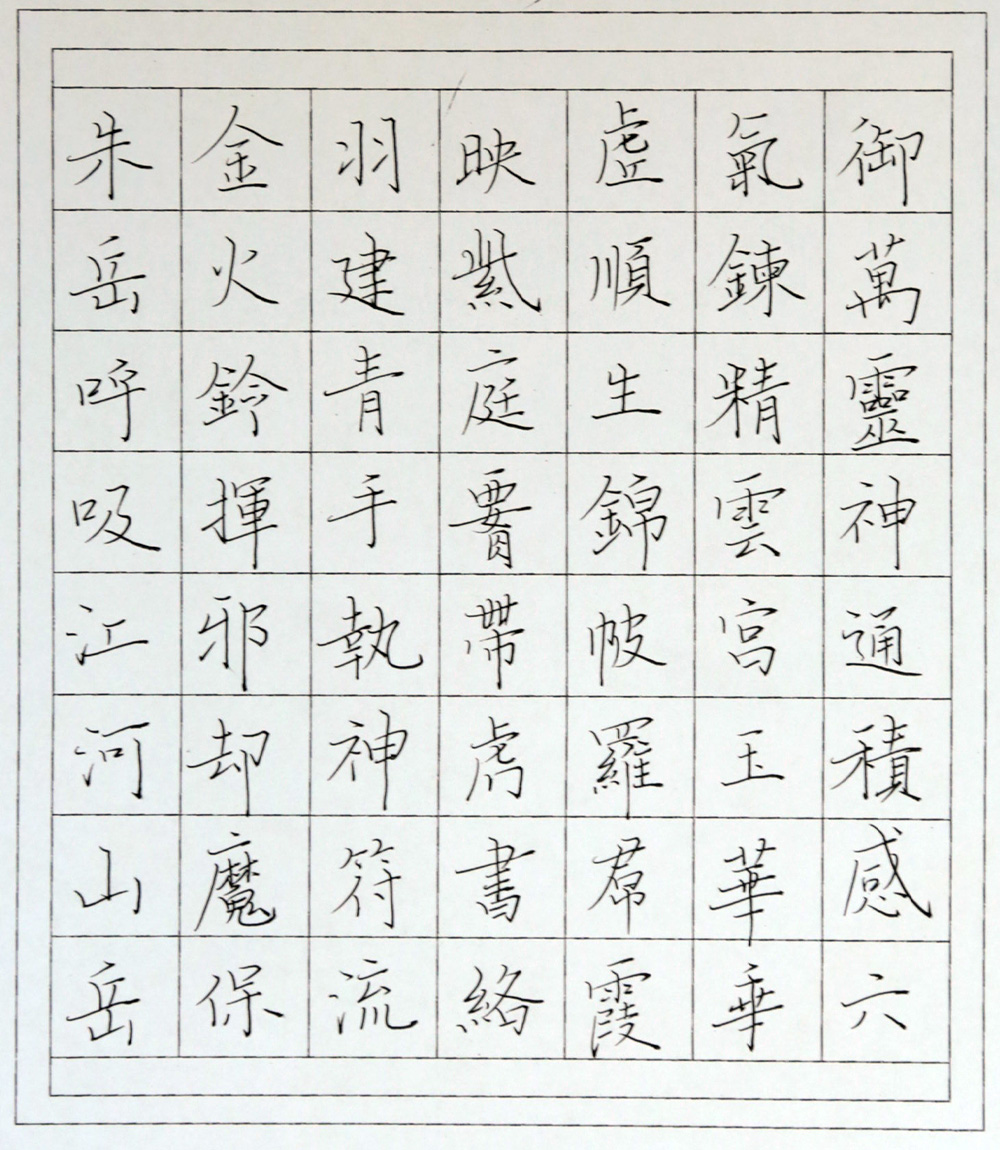 御萬靈神通積感六
氣鍊精雲宮玉華乗
虛順生錦帔羅帬霞
映紫庭腰帶虎書絡
羽建青手執神符流
金火鈴揮邪却魔保
朱岳呼吸江河山岳